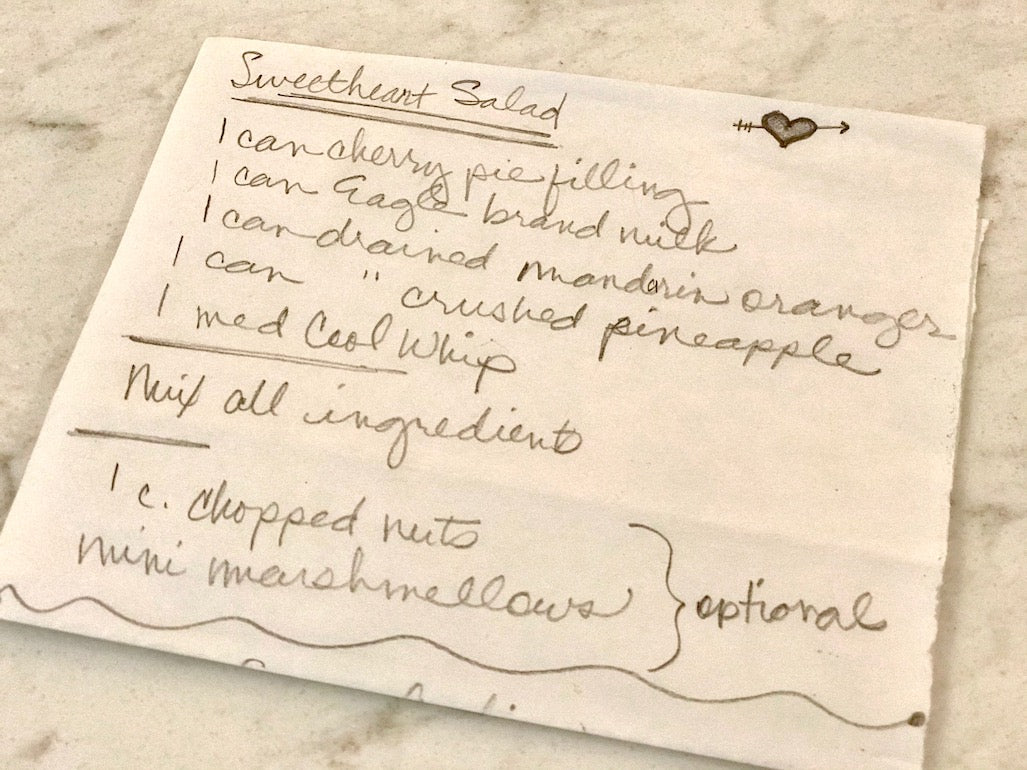 Sweetheart Salad
1 can cherry pie filling
1 can Eagle brand milk
1 can drained mandarin oranges
1 can " crushed pineapple
1 med Cool Whip
Mix all ingredients
1 c. chopped nuts
mini marshmellows
optional